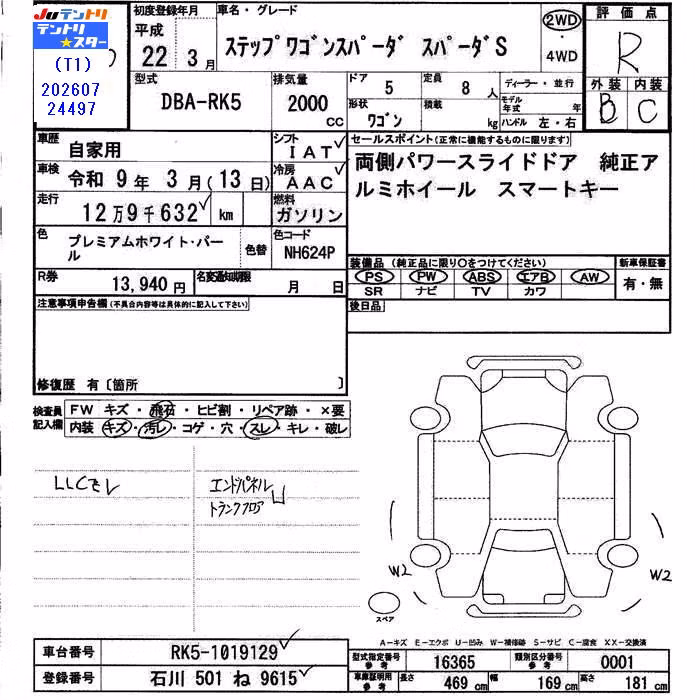 JU テントリ
テントリ★スター
(T1)
202607
24497
初度登録年月 車名・グレード 評価点
平成 22 3月 ステップワゴンスパーダ スパーダS 2WD・4WD R
型式 DBA-RK5 排気量 2000 CC ドア 5 定員 8人 ディーラー・並行
形状 ワゴン 積載 kg モデル年式 年 ハンドル 左・右
外装 B 内装 C
車歴 自家用 シフト IAT
セールスポイント(正常に機能するものに限ります)
車検 令和 9年 3月(13日) 冷房 AAC
両側パワースライドドア 純正アルミホイール スマートキー
走行 12万9千632 km 燃料 ガソリン
色 プレミアムホワイト・パール 色替 色コード NH624P
装備品(純正品に限り○をつけてください) 新車保証書
PS PW ABS エアB AW 有・無
SR ナビ TV カワ
R券 13,940円 名変通知期限 月 日
後日品
注意事項申告欄(不具合内容等は具体的に記入して下さい)
修復歴 有〔箇所 〕
検査員記入欄 FW キズ・飛石・ヒビ割・リペア跡・×要
内装 キズ・汚レ・コゲ・穴・スレ・キレ・破レ
LLCモレ
エンドパネル
トランクフロア U
W2
W2
スペア
A-キズ E-エクボ U-凹み W-補修跡 S-サビ C-腐食 XX-交換済
車台番号 RK5-1019129
登録番号 石川 501 ね 9615
型式指定番号 参考 16365 類別区分番号 参考 0001
車庫証明用 参考 長さ 469 cm 幅 169 cm 高さ 181 cm